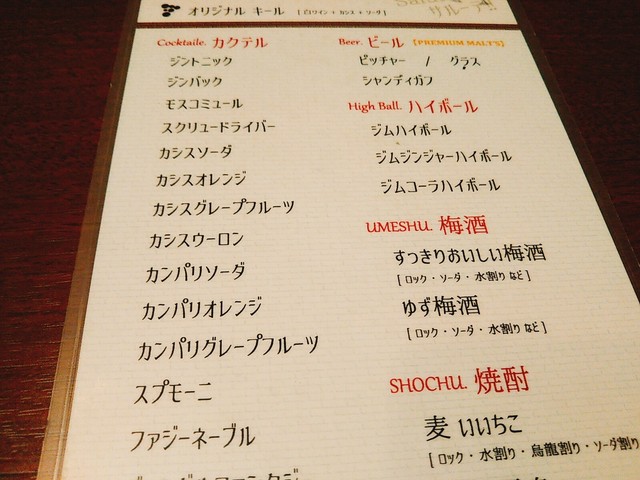 オリジナル キール [白ワイン + カシス + ソーダ]
サルーテ!
Cocktaile. カクテル
ジントニック
ジンバック
モスコミュール
スクリュードライバー
カシスソーダ
カシスオレンジ
カシスグレープフルーツ
カシスウーロン
カンパリソーダ
カンパリオレンジ
カンパリグレープフルーツ
スプモーニ
ファジーネーブル
Beer. ビール [PREMIUM MALT'S]
ピッチャー / グラス
シャンディガフ
High Ball. ハイボール
ジムハイボール
ジムジンジャーハイボール
ジムコーラハイボール
UMESHU. 梅酒
すっきりおいしい梅酒
[ロック・ソーダ・水割りなど]
ゆず梅酒
[ロック・ソーダ・水割りなど]
SHOCHU. 焼酎
麦 いいちこ
[ロック・水割り・烏龍割り・ソーダ割り